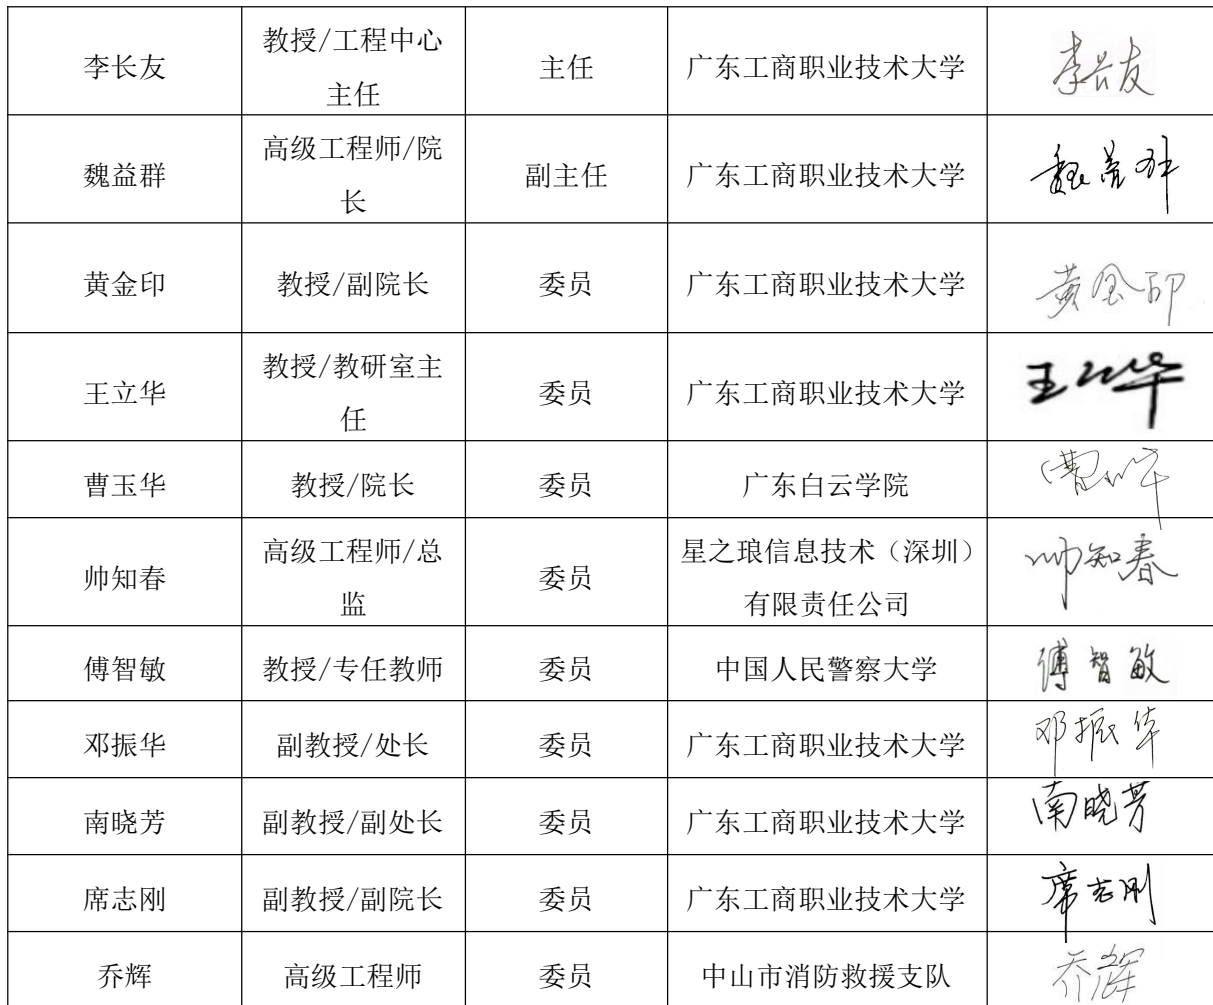 李长友 教授/工程中心 主任 广东工商职业技术大学 李长友
主任
魏益群 高级工程师/院 副主任 广东工商职业技术大学 魏益群
长
黄金印 教授/副院长 委员 广东工商职业技术大学 黄金印
王立华 教授/教研室主 委员 广东工商职业技术大学 王立华
任
曹玉华 教授/院长 委员 广东白云学院 曹玉华
帅知春 高级工程师/总 委员 星之琅信息技术（深圳） 帅知春
监 有限责任公司
傅智敏 教授/专任教师 委员 中国人民警察大学 傅智敏
邓振华 副教授/处长 委员 广东工商职业技术大学 邓振华
南晓芳 副教授/副处长 委员 广东工商职业技术大学 南晓芳
席志刚 副教授/副院长 委员 广东工商职业技术大学 席志刚
乔辉 高级工程师 委员 中山市消防救援支队 乔辉